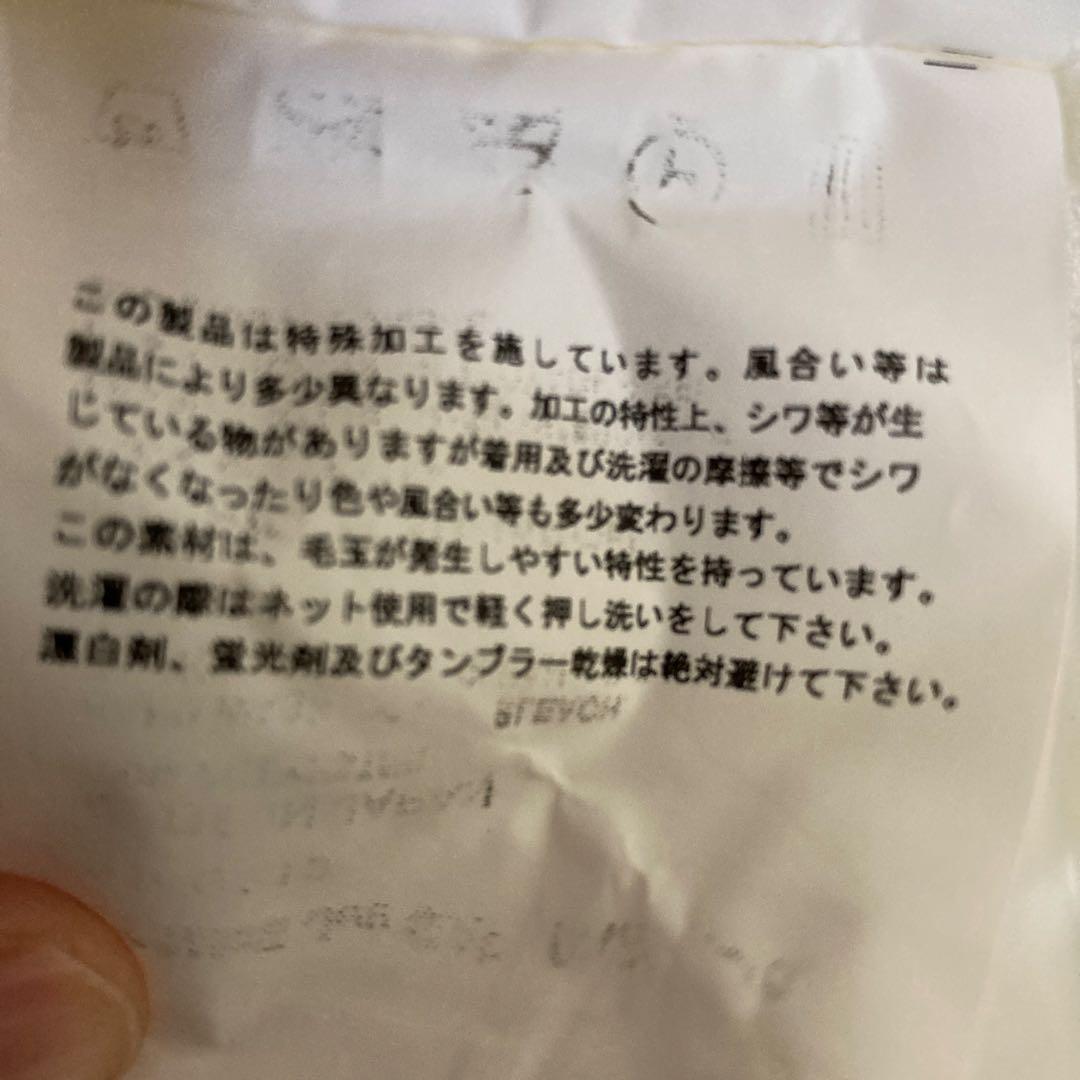 この製品は特殊加工を施しています。風合い等は
製品により多少異なります。加工の特性上、シワ等が生
じている物がありますが着用及び洗濯の摩擦等でシワ
がなくなったり色や風合い等も多少変わります。
この素材は、毛玉が発生しやすい特性を持っています。
洗濯の際はネット使用で軽く押し洗いをして下さい。
漂白剤、蛍光剤及びタンブラー乾燥は絶対避けて下さい。